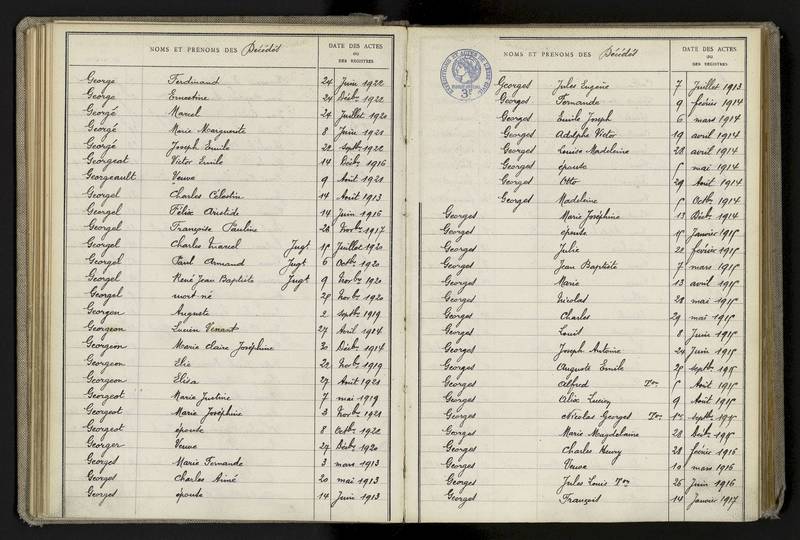 NOMS ET PRENOMS DES Décédés DATE DES ACTES OU DES REGISTRES
George Ferdinand 24 Juin 1922
George Ernestine 24 Décbre 1922
Georgé Marcel 24 Juillet 1920
Georgé Marie Marguerite 8 Juin 1921
Georgé Joseph Emile 22 Septbre 1922
Georgeat Victor Emile 14 Décbre 1916
Georgeault Veuve 9 Août 1921
Georgel Charles Célestin 14 Août 1913
Georgel Félix Aristide 14 Juin 1916
Georgel Françoise Pauline 28 Novbre 1917
Georgel Charles Marcel Jugt 15 Juillet 1920
Georgel Paul Armand Jugt 6 Octbre 1920
Georgel René Jean Baptiste Jugt 9 Novbre 1920
Georgel mort-né 29 Novbre 1920
Georgen Auguste 2 Septbre 1919
Georgeon Lucien Venant 27 Avril 1914
Georgeon Marie Claire Joséphine 30 Décbre 1914
Georgeon Elie 22 Novbre 1919
Georgeon Elisa 27 Août 1921
Georgeot Marie Justine 7 mai 1919
Georgeot Marie Joséphine 3 Novbre 1921
Georgeot épouse 8 Octbre 1922
Georger Veuve 27 Décbre 1920
Georges Marie Fernande 3 mars 1913
Georges Charles Aimé 20 mai 1913
Georges épouse 14 Juin 1913
NOMS ET PRENOMS DES Décédés DATE DES ACTES OU DES REGISTRES
Georges Jules Eugène 7 Juillet 1913
Georges Fernande 9 février 1914
Georges Emile Joseph 6 mars 1914
Georges Adolphe Victor 19 avril 1914
Georges Louise Madeleine 28 avril 1914
Georges épouse 5 mai 1914
Georges Otto 29 Août 1914
Georges Madeleine 5 Octbre 1914
Georges Marie Joséphine 13 Décbre 1914
Georges épouse 15 Janvier 1915
Georges Julie 22 février 1915
Georges Jean Baptiste 7 mars 1915
Georges Marie 13 avril 1915
Georges Nicolas 28 mai 1915
Georges Charles 29 mai 1915
Georges Louis 8 Juin 1915
Georges Joseph Antoine 24 Juin 1915
Georges Auguste Emile 25 Septbre 1915
Georges Alfred Ton 5 Août 1915
Georges Alix Lucien 9 Août 1915
Georges Nicolas Georges Ton Septbre 1915
Georges Marie Magdelaine 28 Décbre 1915
Georges Charles Henry 28 février 1916
Georges Veuve 10 mars 1916
Georges Jules Louis Ton 26 Juin 1916
Georges François 14 Janvier 1917